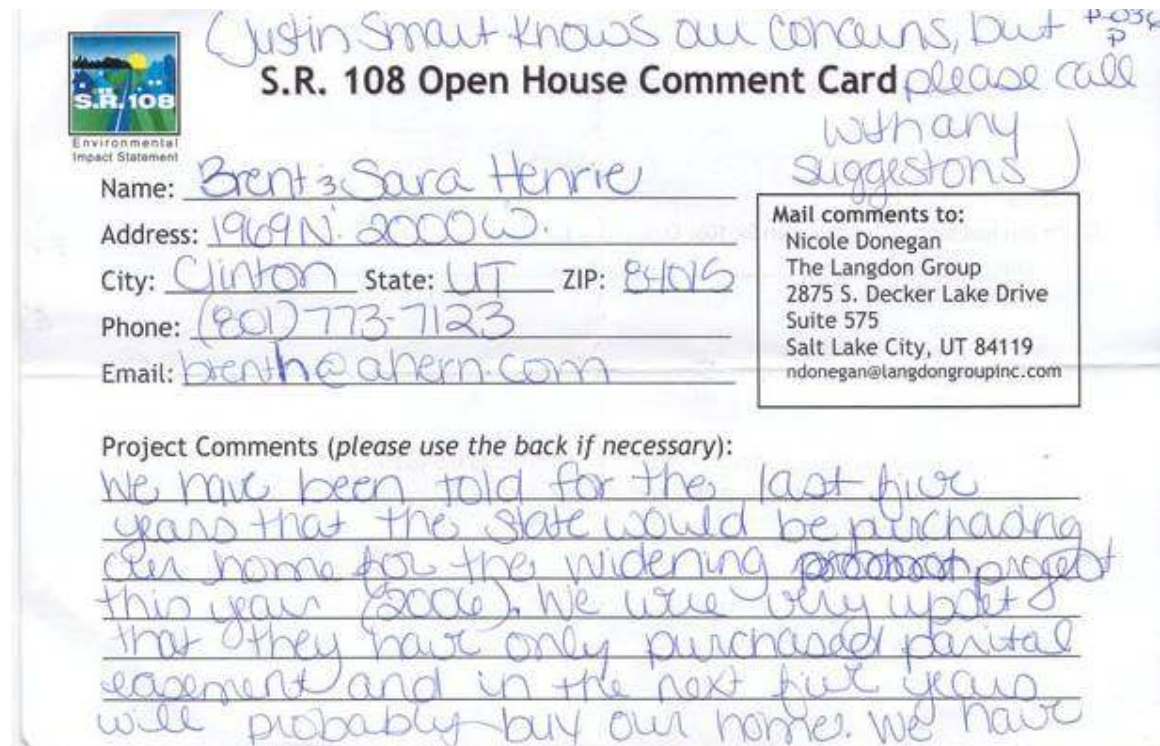 (Justin Smart knows our concerns, but
please call
with any
suggestons)
P-036
P
S.R. 108
Environmental
Impact Statement
S.R. 108 Open House Comment Card
Name: Brent & Sara Henrie
Address: 1969 N. 2000 W.
City: Clinton State: UT ZIP: 84015
Phone: (801) 773-7123
Email: brenth@ahern.com
Mail comments to:
Nicole Donegan
The Langdon Group
2875 S. Decker Lake Drive
Suite 575
Salt Lake City, UT 84119
ndonegan@langdongroupinc.com
Project Comments (please use the back if necessary):
We have been told for the last five
years that the state would be purchasing
our home for the widening project
this year (2006). We were very upset
that they have only purchased parital
easement and in the next five years
will probably buy our home. We have